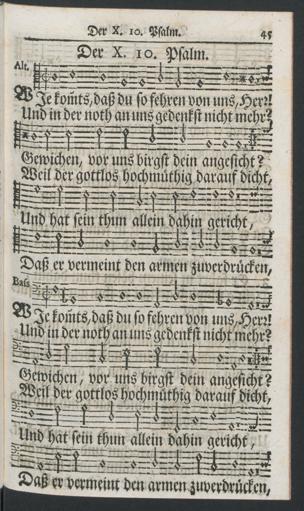 Der X. 10. Psalm. 45
Der X. 10. Psalm.
Alt.
WJe kom̃ts, daß du so fehren von uns, Herr!
Und in der noth an uns gedenkst nicht mehr?
Gewichen, vor uns birgst dein angesicht?
Weil der gottlos hochmüthig darauf dicht,
Und hat sein thun allein dahin gericht,
Daß er vermeint den armen zuverdrücken,
Bass
WJe kom̃ts, daß du so fehren von uns, Herr!
Und in der noth an uns gedenkst nicht mehr?
Gewichen, vor uns birgst dein angesicht?
Weil der gottlos hochmüthig darauf dicht,
Und hat sein thun allein dahin gericht,
Daß er vermeint den armen zuverdrücken,